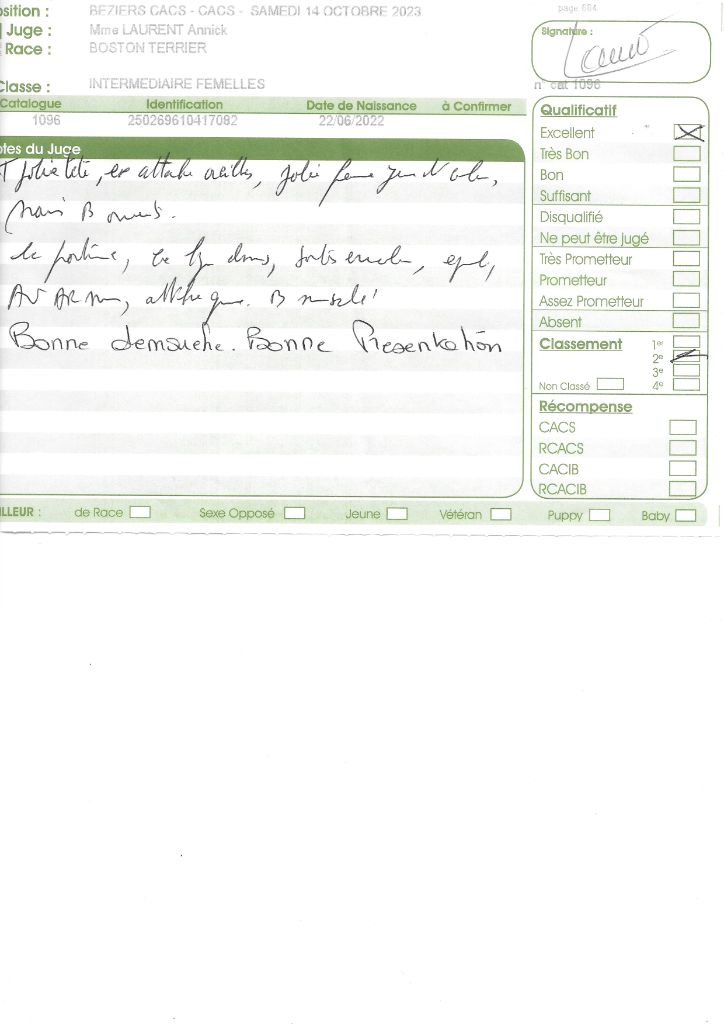 osition : BEZIERS CACS - CACS - SAMEDI 14 OCTOBRE 2023
Juge : Mme LAURENT Annick
Race : BOSTON TERRIER
Classe : INTERMEDIAIRE FEMELLES
page 684
Signature :
n° cat 1096
Catalogue Identification Date de Naissance à Confirmer
1096 250269610417082 22/06/2022
otes du Juge
T jolie tête, ex attache oreilles, jolie forme yeux
B
poitrine, ex dessus,
AV AR B musclé
Bonne démarche. Bonne Présentation
Qualificatif
Excellent
Très Bon
Bon
Suffisant
Disqualifié
Ne peut être jugé
Très Prometteur
Prometteur
Assez Prometteur
Absent
Classement 1er
2e
3e
Non Classé 4e
Récompense
CACS
RCACS
CACIB
RCACIB
ILLEUR : de Race Sexe Opposé Jeune Vétéran Puppy Baby